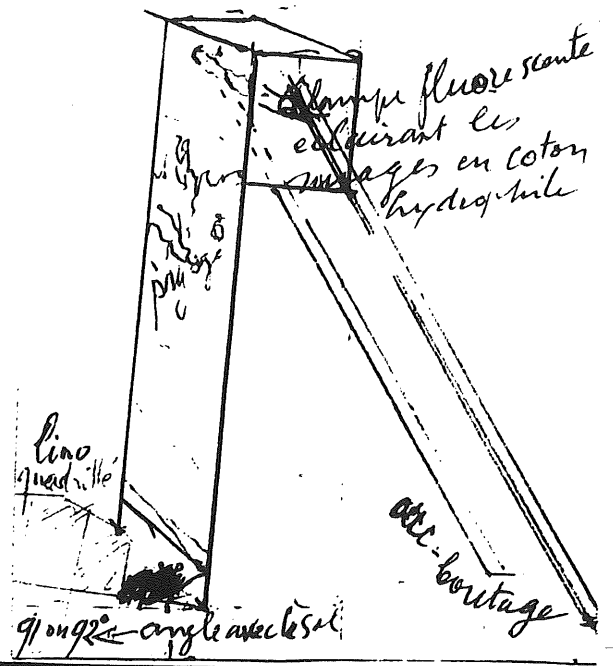 lampe fluorescente
eclairant les
nuages en coton
hydrophile
lino
quadrillé
arc-boutage
91 ou 92° ← angle avec le sol